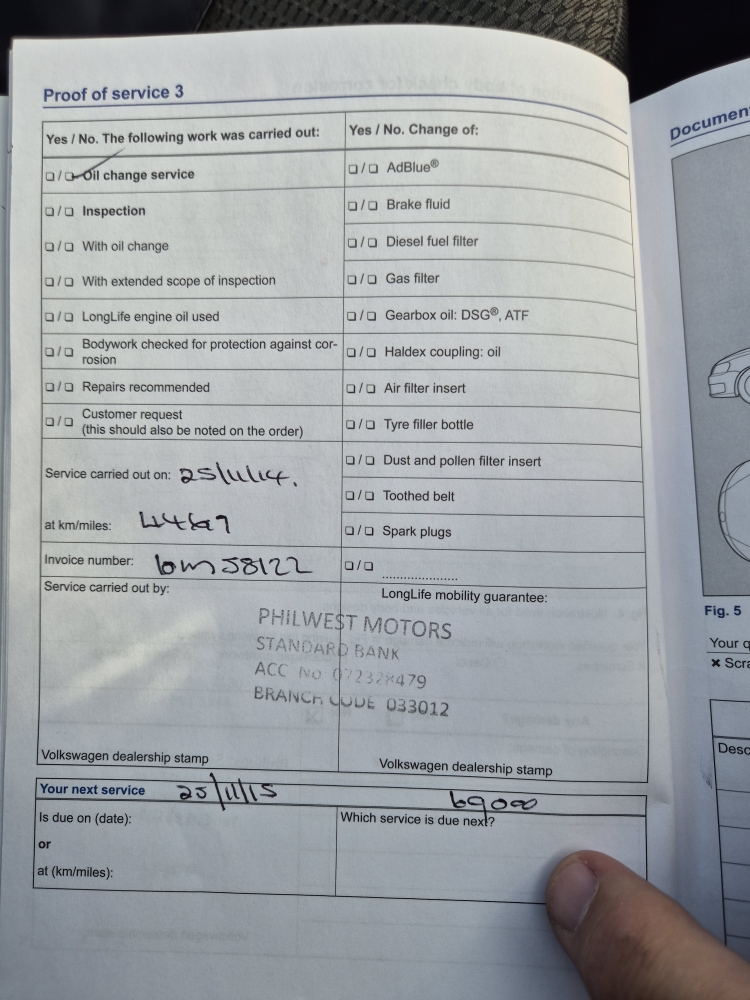 Proof of service 3
Yes / No. The following work was carried out:
❑ / ❑ Oil change service
❑ / ❑ Inspection
❑ / ❑ With oil change
❑ / ❑ With extended scope of inspection
❑ / ❑ LongLife engine oil used
❑ / ❑ Bodywork checked for protection against cor-
rosion
❑ / ❑ Repairs recommended
❑ / ❑ Customer request
(this should also be noted on the order)
Service carried out on: 25/11/14.
at km/miles:
Invoice number: bm58122
Service carried out by:
Yes / No. Change of:
❑ / ❑ AdBlue®
❑ / ❑ Brake fluid
❑ / ❑ Diesel fuel filter
❑ / ❑ Gas filter
❑ / ❑ Gearbox oil: DSG®, ATF
❑ / ❑ Haldex coupling: oil
❑ / ❑ Air filter insert
❑ / ❑ Tyre filler bottle
❑ / ❑ Dust and pollen filter insert
❑ / ❑ Toothed belt
❑ / ❑ Spark plugs
❑ / ❑ ......................
LongLife mobility guarantee:
PHILWEST MOTORS
STANDARD BANK
ACC No 072328479
BRANCH CODE 033012
Volkswagen dealership stamp
Volkswagen dealership stamp
Your next service 25/11/15 69000
Is due on (date):
or
at (km/miles):
Which service is due next?
Documen
Fig. 5
Your q
× Scra
Desc